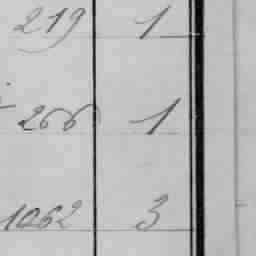 219 1
266 1
1062 3